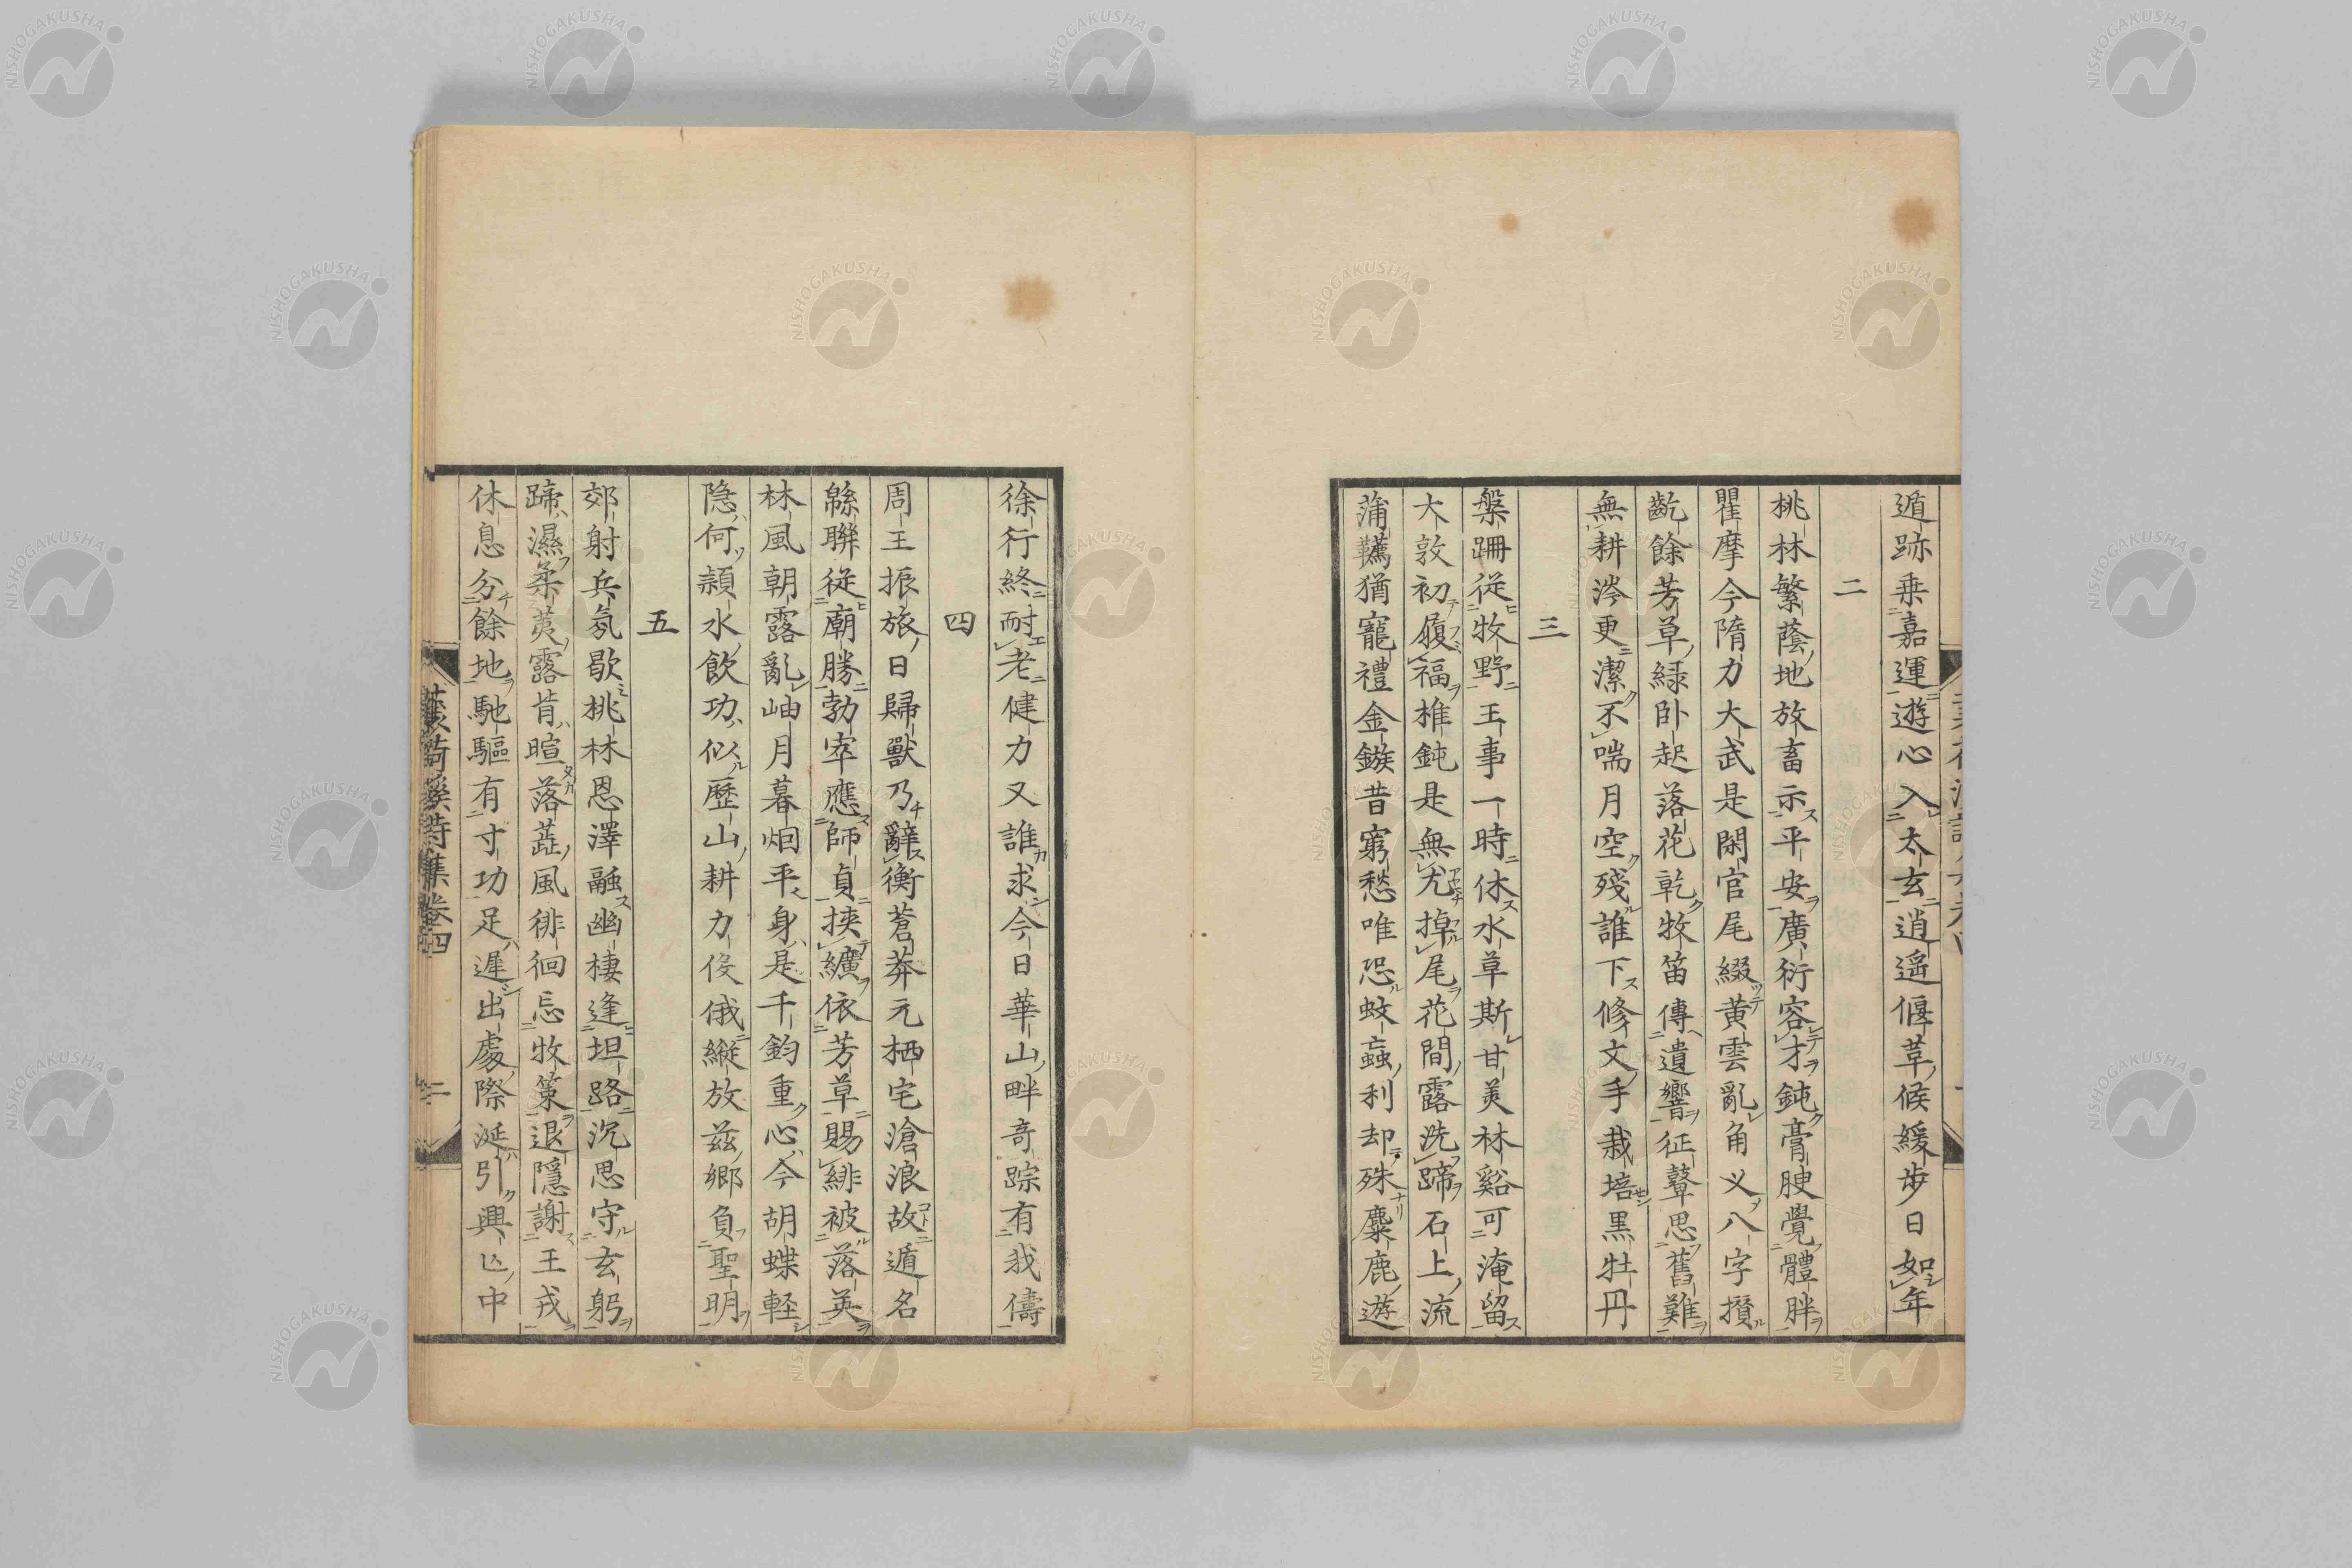 遁跡乗嘉運遊心入太玄逍遥偃草候緩歩日如年
二
桃林繁蔭地放畜示平安廣衍容才鈍膏腴覺體胖
瞿摩今隋力大武是閑官尾綴黄雲亂角义八字攅
齕餘芳草緑卧起落花乾牧笛傳遺響征鼙思舊難
無耕涔更潔不喘月空殘誰下修文手栽培黒牡丹
三
槃跚従牧野王事一時休水草斯甘美林谿可淹留
大敦初履福椎鈍是無尤掉尾花間露洗蹄石上流
蒲韉猶寵禮金鏃昔窮愁唯恐蚊蝱利却殊麋鹿遊
徐行終耐老健力又誰求今日華山畔竒踪有我儔
四
周王振旅日歸獸乃辭衡蒼莽元栖宅滄浪故遁名
緜聯従廟勝勃窣應師貞挟纊依芳草賜緋被落英
林風朝露亂岫月暮烟平身是千鈞重心今胡蝶軽
隐何潁水飲功似歴山耕力伇俄縱放兹郷負聖明
五
郊射兵氛歇桃林恩澤融幽棲逢坦路沉思守玄躬
蹄濕柔荑露肯暄落蕋風徘徊忘牧策退隱謝王戎
休息分餘地馳驅有寸功足遅出處際涎引興亾中
蓑荷溪詩集巻四
二
NISHOGAKUSHA